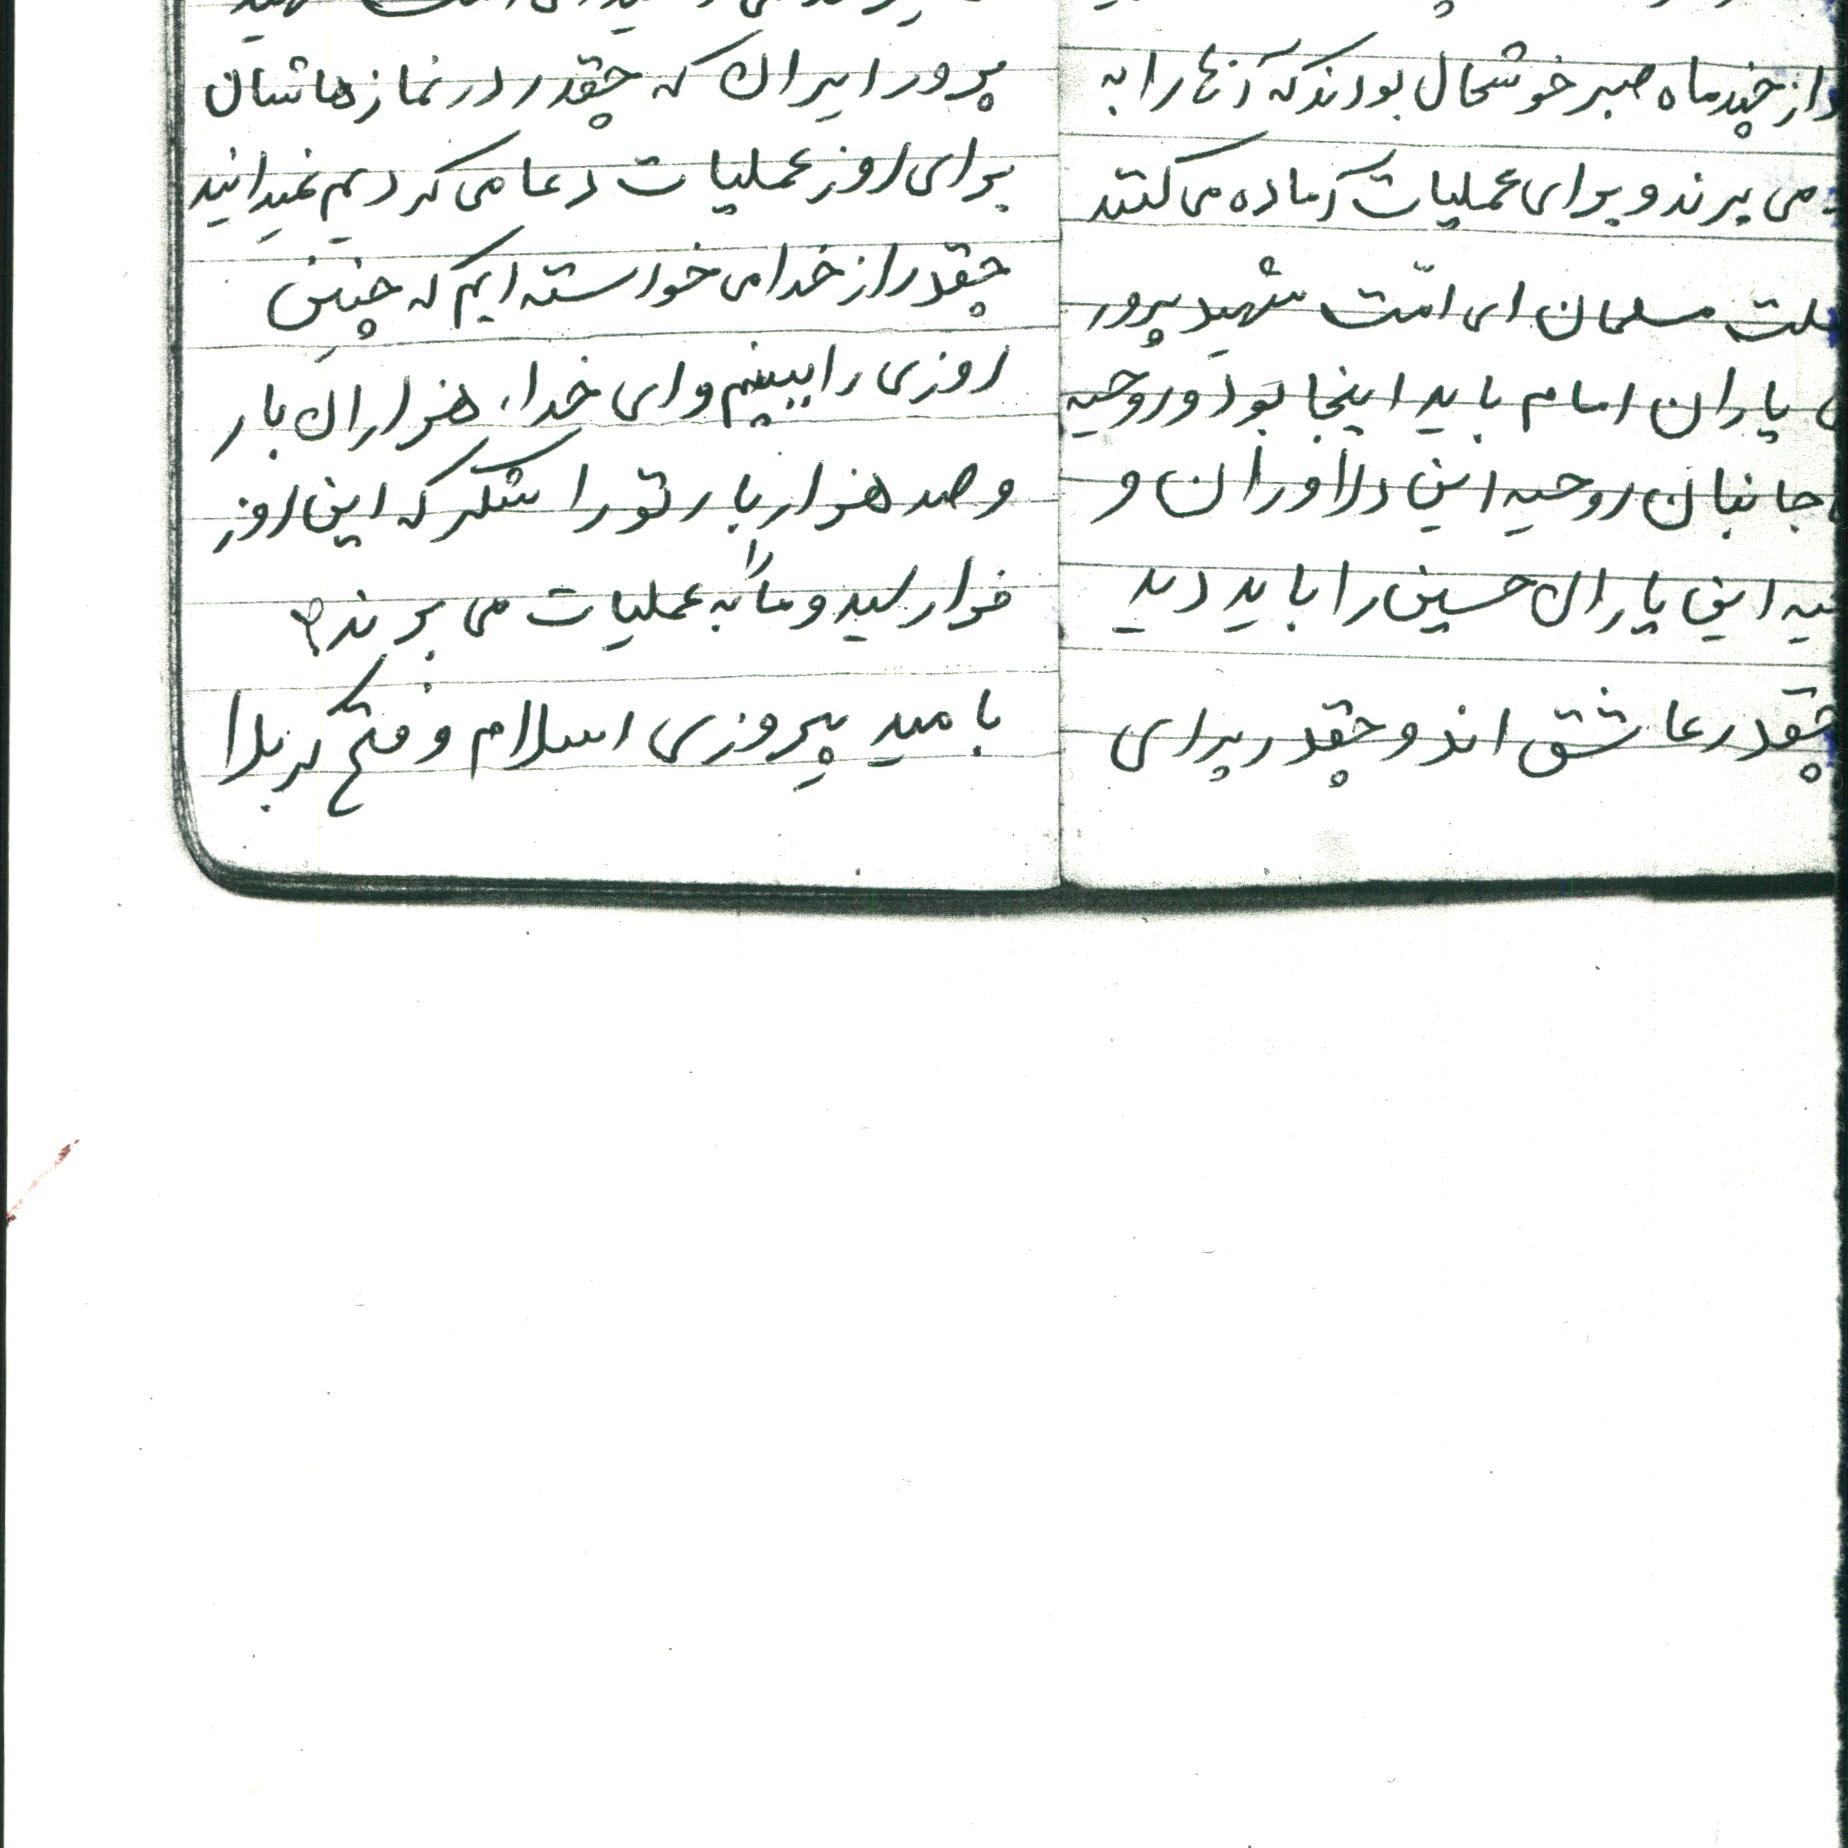 از چند ماه صبر خوشحال بودند که آنها را به
می برند و برای عملیات آماده می کنند
ملت مسلمان ای امّت شهید پرور
یاران امام باید اینجا بود و روحیه
جانبان روحیه این دلاوران و
این یاران حسین را باید دید
چقدر عاشق اند و چقدر برای
پرور ایران که چقدر در نمازهاشان
برای روز عملیات دعا می کردیم نمیدانید
چقدر از خدا می خواسته ایم که چنین
روزی را ببینیم و ای خدا، هزاران بار
و صد هزار بار تو را شکر که این روز
فرا رسید و ما را به عملیات می برند
بامید پیروزی اسلام و فتح کربلا